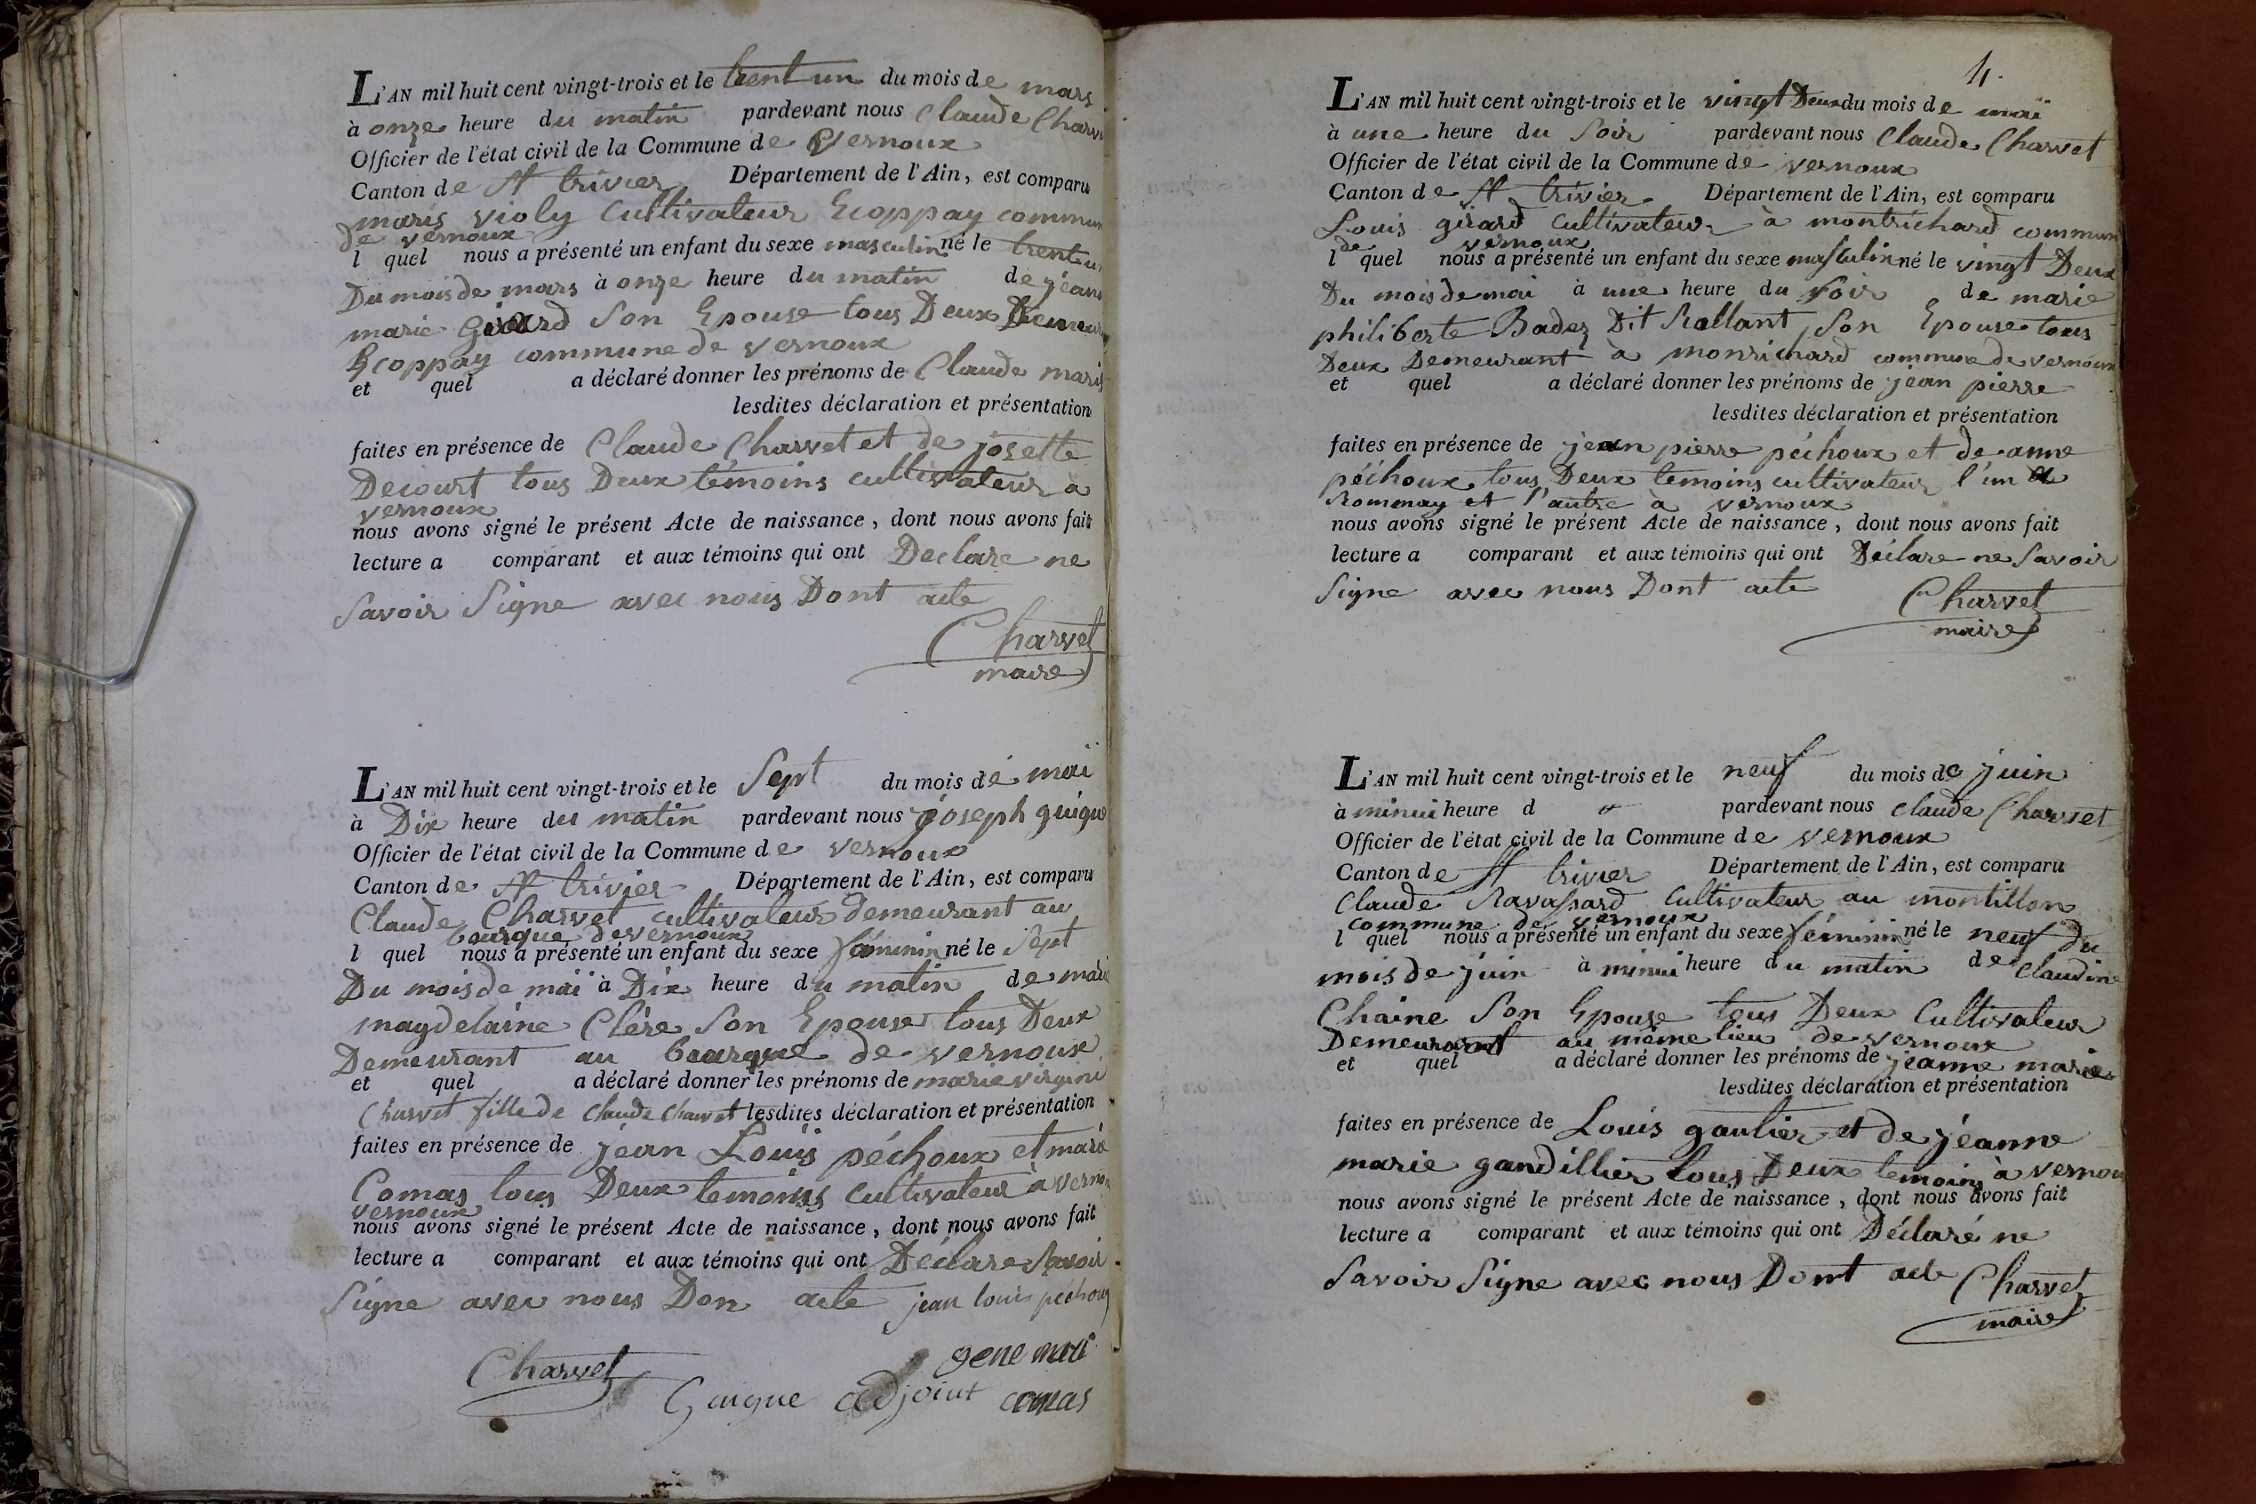 L'AN mil huit cent vingt-trois et le trent un du mois de mars
à onze heure du matin pardevant nous Claude Charv
Officier de l'état civil de la Commune de vernoux
Canton de St trivier Département de l'Ain, est comparu
maris violy Cultivateur Ecoppay commun
de vernoux
l quel nous a présenté un enfant du sexe masculin né le trente u
Du mois de mars à onze heure du matin de jéann
marie Girard Son Epouse tous Deux Demeur
Ecoppay commune de vernoux
et quel a déclaré donner les prénoms de Claude maris
lesdites déclaration et présentation
faites en présence de Claude Charvet et de josette
Decourt tous Deux témoins cultivateur a
vernoux
nous avons signé le présent Acte de naissance, dont nous avons fait
lecture a comparant et aux témoins qui ont Declare ne
Savoir Signe avec nous Dont acte
Charvet
maire
L'AN mil huit cent vingt-trois et le Sept du mois de maï
à Dix heure du matin pardevant nous joseph guigue
Officier de l'état civil de la Commune de vernoux
Canton de St trivier Département de l'Ain, est comparu
Claude Charvet cultivateur Demeurant au
bourque de vernoux
l quel nous a présenté un enfant du sexe féminin né le Sept
Du mois de maï à Dix heure du matin de marie
magdelaine Clère Son Epouse tous Deux
Demeurant au bourque de vernoux
et quel a déclaré donner les prénoms de marie virgini
Charvet fille de Claude Charvet lesdites déclaration et présentation
faites en présence de jéan Louïs péchoux et marie
Comas tous Deux temoins Cultivateur à verno
vernoux
nous avons signé le présent Acte de naissance, dont nous avons fait
lecture a comparant et aux témoins qui ont Déclare Savoir
Signe avec nous Don acte jean louis péchoux
gene mari
Charvet Guigue adjoint comas
4.
L'AN mil huit cent vingt-trois et le vingt Deux du mois de maï
à une heure du Soir pardevant nous Claude Charvet
Officier de l'état civil de la Commune de vernoux
Canton de St trivier Département de l'Ain, est comparu
Louis girard Cultivateur à montrichard commun
de vernoux
l quel nous a présenté un enfant du sexe masculin né le vingt Deux
Du mois de mai à une heure du Soir de marie
philiberte Badez Dit Rollant Son Epouse tous
Deux Demeurant à monrichard commune de vernoux
et quel a déclaré donner les prénoms de jean pierre
lesdites déclaration et présentation
faites en présence de jean pierre péchoux et de anne
péchoux tous Deux temoins cultivateur l'un a
Rommay et l'autre à vernoux
nous avons signé le présent Acte de naissance, dont nous avons fait
lecture a comparant et aux témoins qui ont Déclare ne Savoir
Signe avec nous Dont acte
Charvet
maire
L'AN mil huit cent vingt-trois et le neuf du mois de juin
à minui heure d pardevant nous Claude Charvet
Officier de l'état civil de la Commune de vernoux
Canton de St trivier Département de l'Ain, est comparu
Claude Ravassard Cultivateur au montillon
commune de vernoux
l quel nous a présenté un enfant du sexe féminin né le neuf du
mois de juin à minui heure du matin de Claudine
Chaine Son Epouse tous Deux Cultivateur
Demeurant au même lieu de vernoux
et quel a déclaré donner les prénoms de jeanne marie
lesdites déclaration et présentation
faites en présence de Louis gaulier et de jéanne
marie gandillier tous Deux temoins à vernou
nous avons signé le présent Acte de naissance, dont nous avons fait
lecture a comparant et aux témoins qui ont Déclaré ne
Savoir Signe avec nous Dont acte Charvet
maire